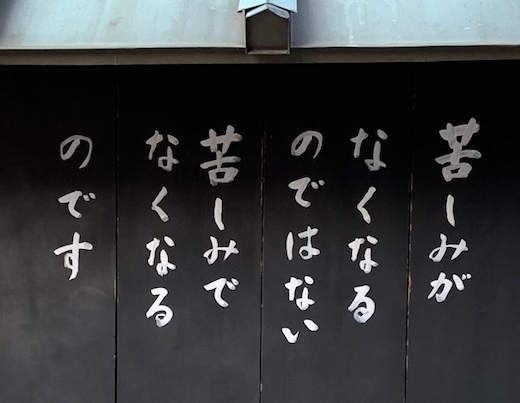 苦しみが
なくなる
のではない
苦しみで
なくなる
のです